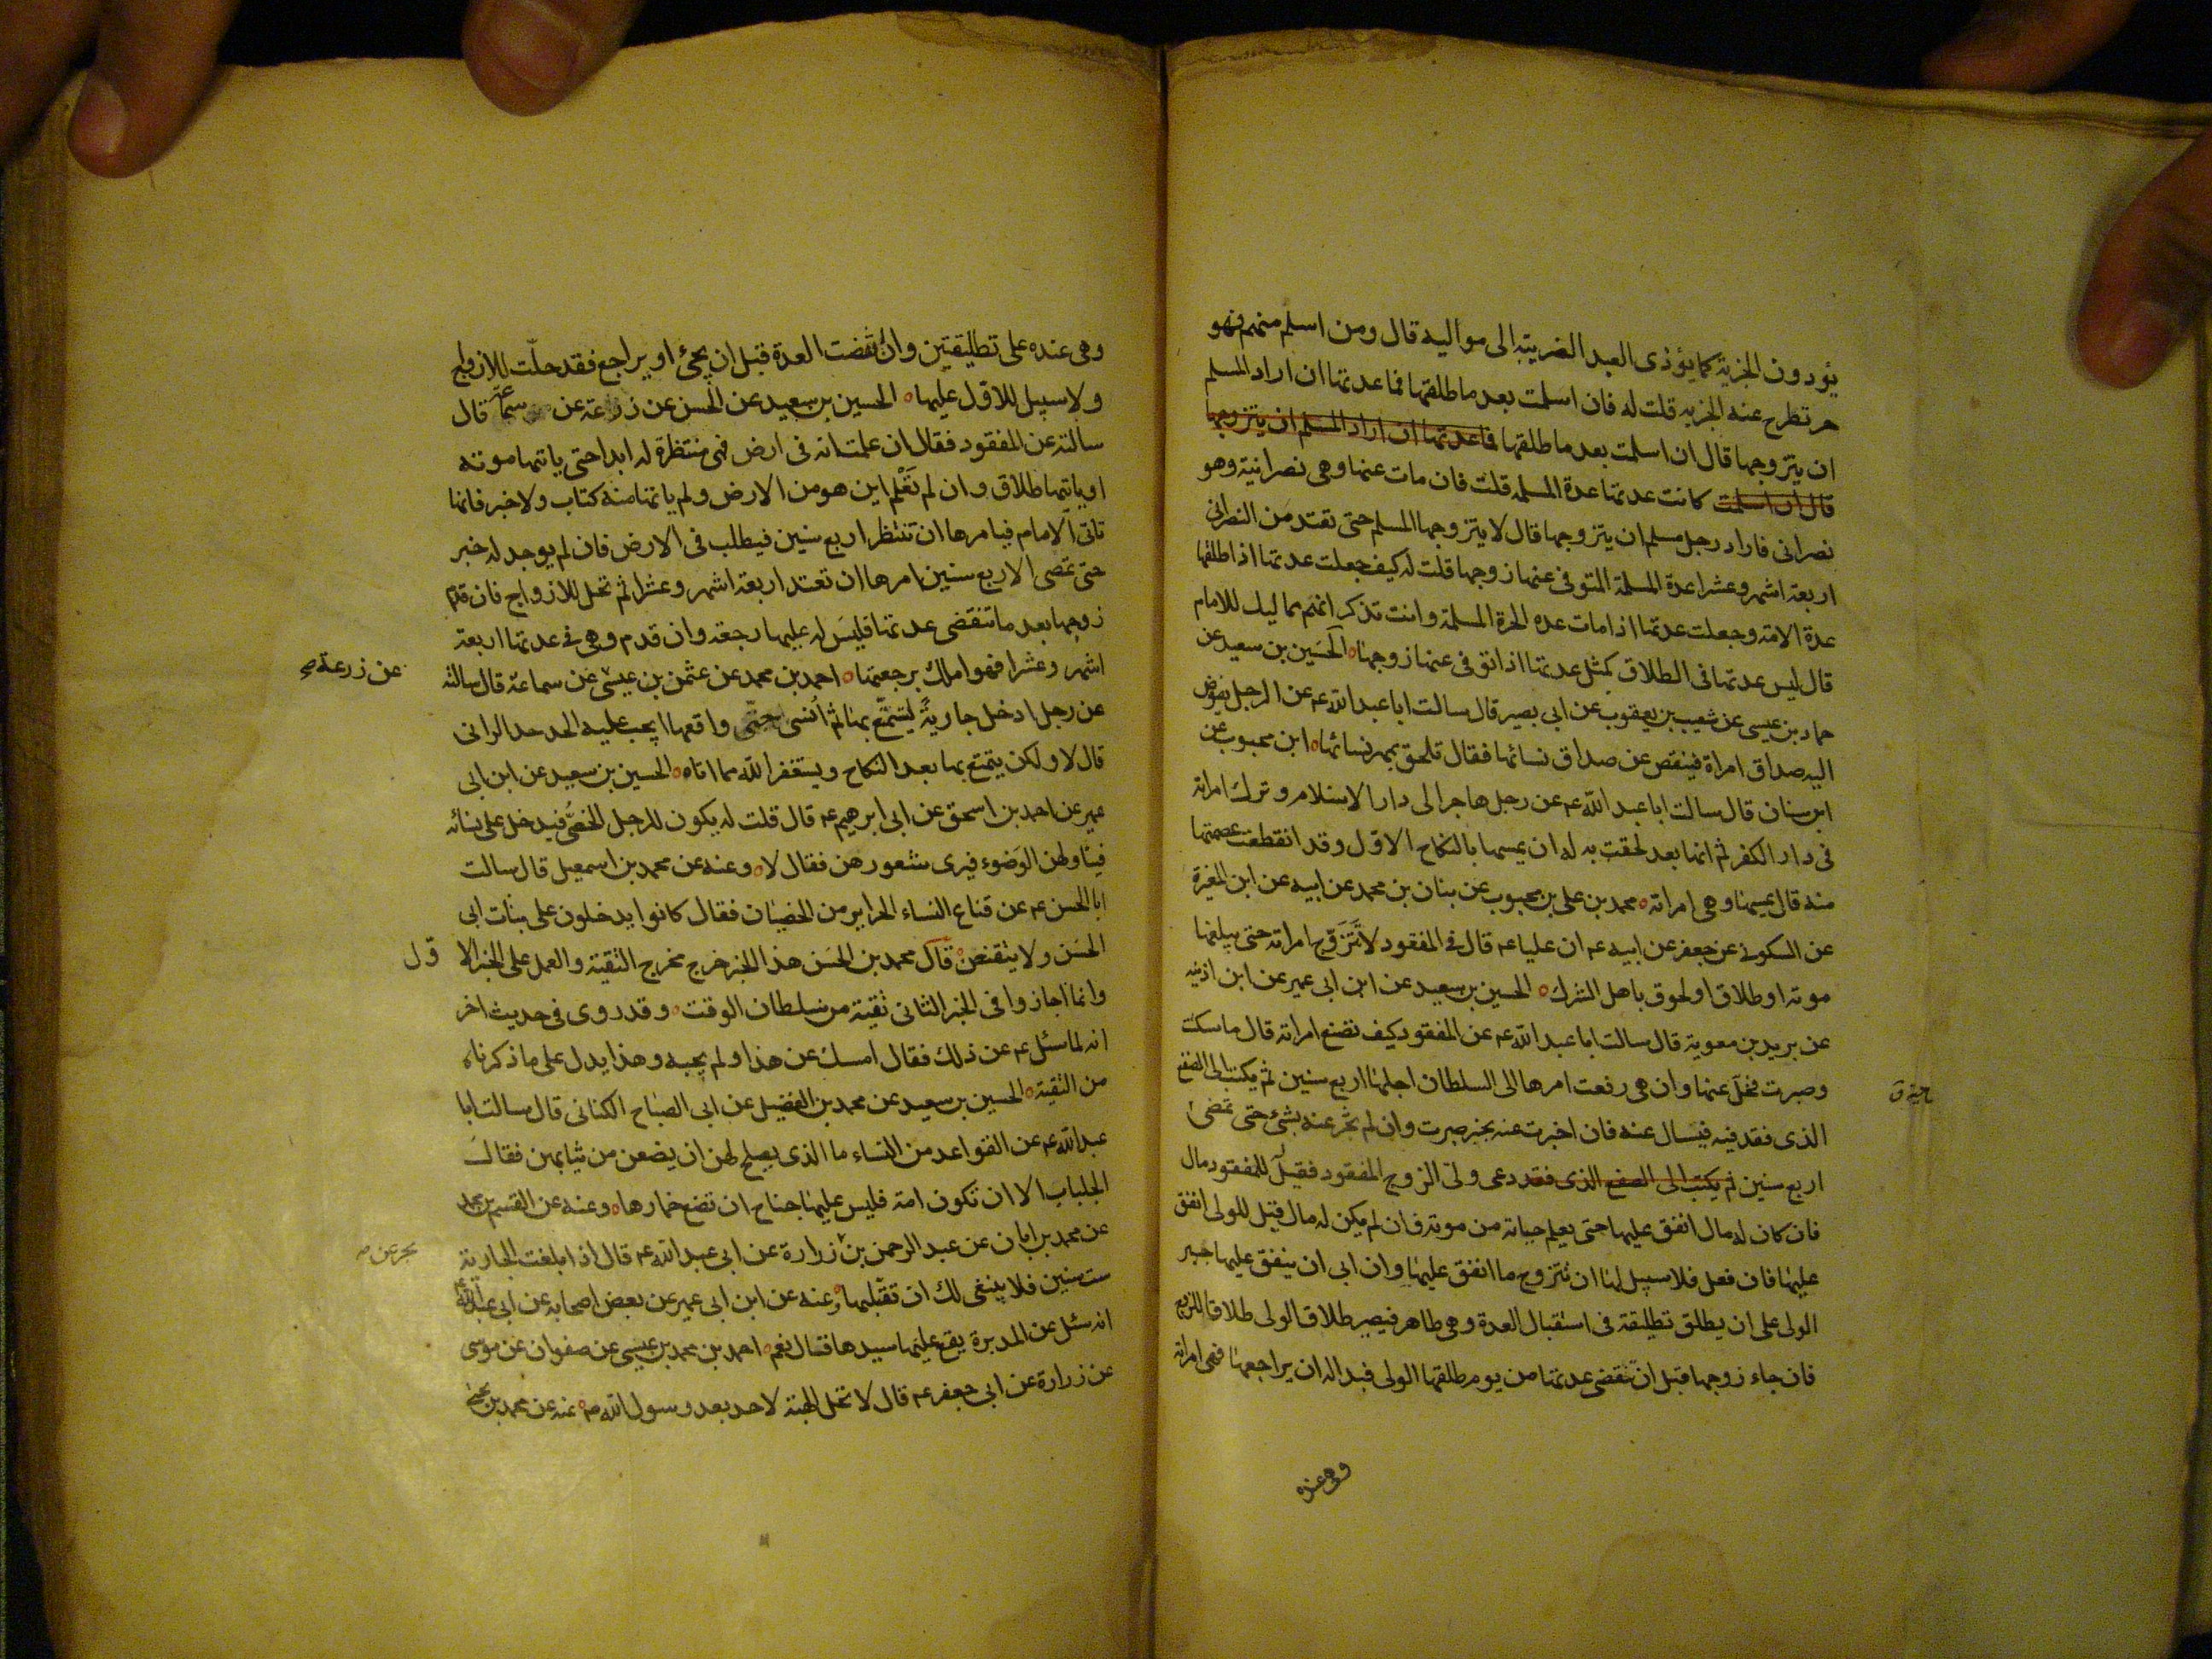 يؤدون الجزية كما يؤدى العبد الضريبة الى مواليه قال ومن اسلم منهم فهو
حر تطرح عنه الجزيه قلت له فان اسلمت بعد ما طلقها فما عدتها ان اراد المسلم
ان يتزوجها قال ان اسلمت بعد ما طلقها فاعدتها ان اراد المسلم ان يتزوجها
قال ان اسلمت كانت عدتها عدة المسلمه قلت فان مات عنها وهى نصرانية وهو
نصرانى فاراد رجل مسلم ان يتزوجها قال لا يتزوجها المسلم حتى تعتد من النصرانى
اربعة اشهر وعشرا عدة المسلمة المتوفى عنها زوجها قلت له كيف جعلت عدتها اذا طلقها
عدة الامة وجعلت عدتها اذا مات عده الحرة المسلمة وانت تذكر انهم مماليك للامام
قال ليس عدتها فى الطلاق كمثل عدتها اذا توفى عنها زوجها الحسين بن سعيد عن
حماد بن عيسى عن شعيب بن يعقوب عن ابى بصير قال سالت ابا عبد الله عم عن الرجل يفوض
اليه صداق امراة فينقص عن صداق نسائها فقال تلحق بمهر نسائها ابن محبوب عن
ابن سنان قال سالت ابا عبد الله عم عن رجل هاجر الى دار الاسلام وترك امراته
فى دار الكفر ثم انها بعد لحقت به له ان يمسها بالنكاح الاول وقد انقطعت عصمتها
منه قال يمسها وهى امراته محمد بن على بن محبوب عن بنان بن محمد عن ابيه عن ابن المغيرة
عن السكونى عن جعفر عن ابيه عم ان عليا عم قال فى المفقود لا تتزوج امراته حتى يبلغها
موته او طلاق او لحوق باهل الشرك الحسين بن سعيد عن ابن ابى عمير عن ابن اذينه
عن بريد بن معوية قال سالت ابا عبد الله عم عن المفقود كيف تصنع امراته قال ما سكت
وصبرت فخل عنها وان هى رفعت امرها الى السلطان اجلها اربع سنين ثم يكتب الى الصقع
الذى فقد فيه فيسال عنه فان اخبرت عنه بخبر صبرت وان لم تخبر عنه بشئ حتى تمضى
اربع سنين ثم يكتب الى الصقع الذى فقد دعى ولى الزوج المفقود فقيل للمفقود مال
فان كان له مال انفق عليها حتى يعلم حياته من موته فان لم يكن له مال قيل للولى انفق
عليها فان فعل فلا سبيل لها ان تتزوج ما انفق عليها وان ابى ان ينفق عليها جبر
الولى على ان يطلق تطليقة فى استقبال العدة وهى طاهر فيصير طلاق الولى طلاقا للزوج
فان جاء زوجها قبل ان تنقضى عدتها من يوم طلقها الولى فبدا له ان يراجعها فهى امراته
وهى عنده
وهى عنده على تطليقتين وان انقضت العدة قبل ان يجئ او يراجع فقد حلت للازواج
ولا سبيل للاول عليها الحسين بن سعيد عن الحسن عن زرعة عن سماعة قال
سالته عن المفقود فقال ان علمت انه فى ارض فهى منتظرة له ابدا حتى ياتيها موته
او ياتيها طلاق وان لم تعلم اين هو من الارض ولم ياتها منه كتاب ولا خبر فانها
تاتى الامام فيامرها ان تنتظر اربع سنين فيطلب فى الارض فان لم يوجد له خبر
حتى تمضى الاربع سنين امرها ان تعتد اربعة اشهر وعشرا ثم تحل للازواج فان قدم
زوجها بعد ما تنقضى عدتها فليس له عليها رجعة وان قدم وهى فى عدتها اربعة
اشهر وعشرا فهو املك برجعتها احمد بن محمد عن عثمن بن عيسى عن سماعة قال سالته
عن زرعة صح
عن رجل ادخل جارية ليتمتع بها ثم انسى حتى واقعها ايجب عليه الحد حد الزانى
قال لا ولكن يتمتع بها بعد النكاح ويستغفر الله مما اتاه الحسين بن سعيد عن ابن ابى
عمير عن احمد بن اسحق عن ابى ابرهيم عم قال قلت له يكون للرجل الخصى فيدخل على نسائه
فيناولهن الوضوء فيرى شعورهن فقال لا وعنه عن محمد بن اسمعيل قال سالت
ابا الحسن عم عن قناع النساء الحراير من الخصيان فقال كانوا يدخلون على بنات ابى
الحسن ولا يتقنعن قال محمد بن الحسن هذا الخبر خرج مخرج التقية والعمل على الخبر الا
ول
وانما اجازوا فى الخبر الثانى تقية من سلطان الوقت وقد روى فى حديث اخر
انه لما سئل عم عن ذلك فقال امسك عن هذا ولم يجبه وهذا يدل على ما ذكرناه
من التقية الحسين بن سعيد عن محمد بن الفضيل عن ابى الصباح الكنانى قال سالت ابا
عبد الله عم عن القواعد من النساء ما الذى يصلح لهن ان يضعن من ثيابهن فقال
الجلباب الا ان تكون امة فليس عليها جناح ان تضع خمارها وعنه عن القسم بن محمد
عن محمد بن ابان عن عبد الرحمن بن زرارة عن ابى عبد الله عم قال اذا بلغت الجارية
بحر عن صح
ست سنين فلا ينبغى لك ان تقبلها وعنه عن ابن ابى عمير عن بعض اصحابه عن ابى عبد الله
انه سئل عن المدبرة يقع عليها سيدها فقال نعم احمد بن محمد بن عيسى عن صفوان عن موسى
عن زرارة عن ابى جعفر عم قال لا تحل الهبة لاحد بعد رسول الله ص عنه عن محمد بن يحيى